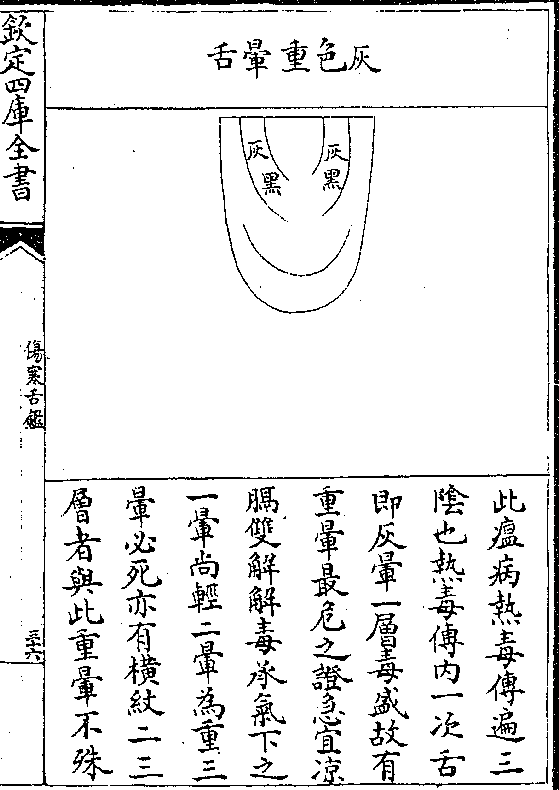 灰色重暈舌
灰黑
灰黑
此瘟病熱毒傳遍三
陰也熱毒傳内一次舌
即灰暈一層毒盛故有
重暈最危之證急宜凉
膈雙解解毒承氣下之
一暈尚輕二暈為重三
暈必死亦有橫紋二三
層者與此重暈不殊
欽定四庫全書
傷寒舌鑑
三十六